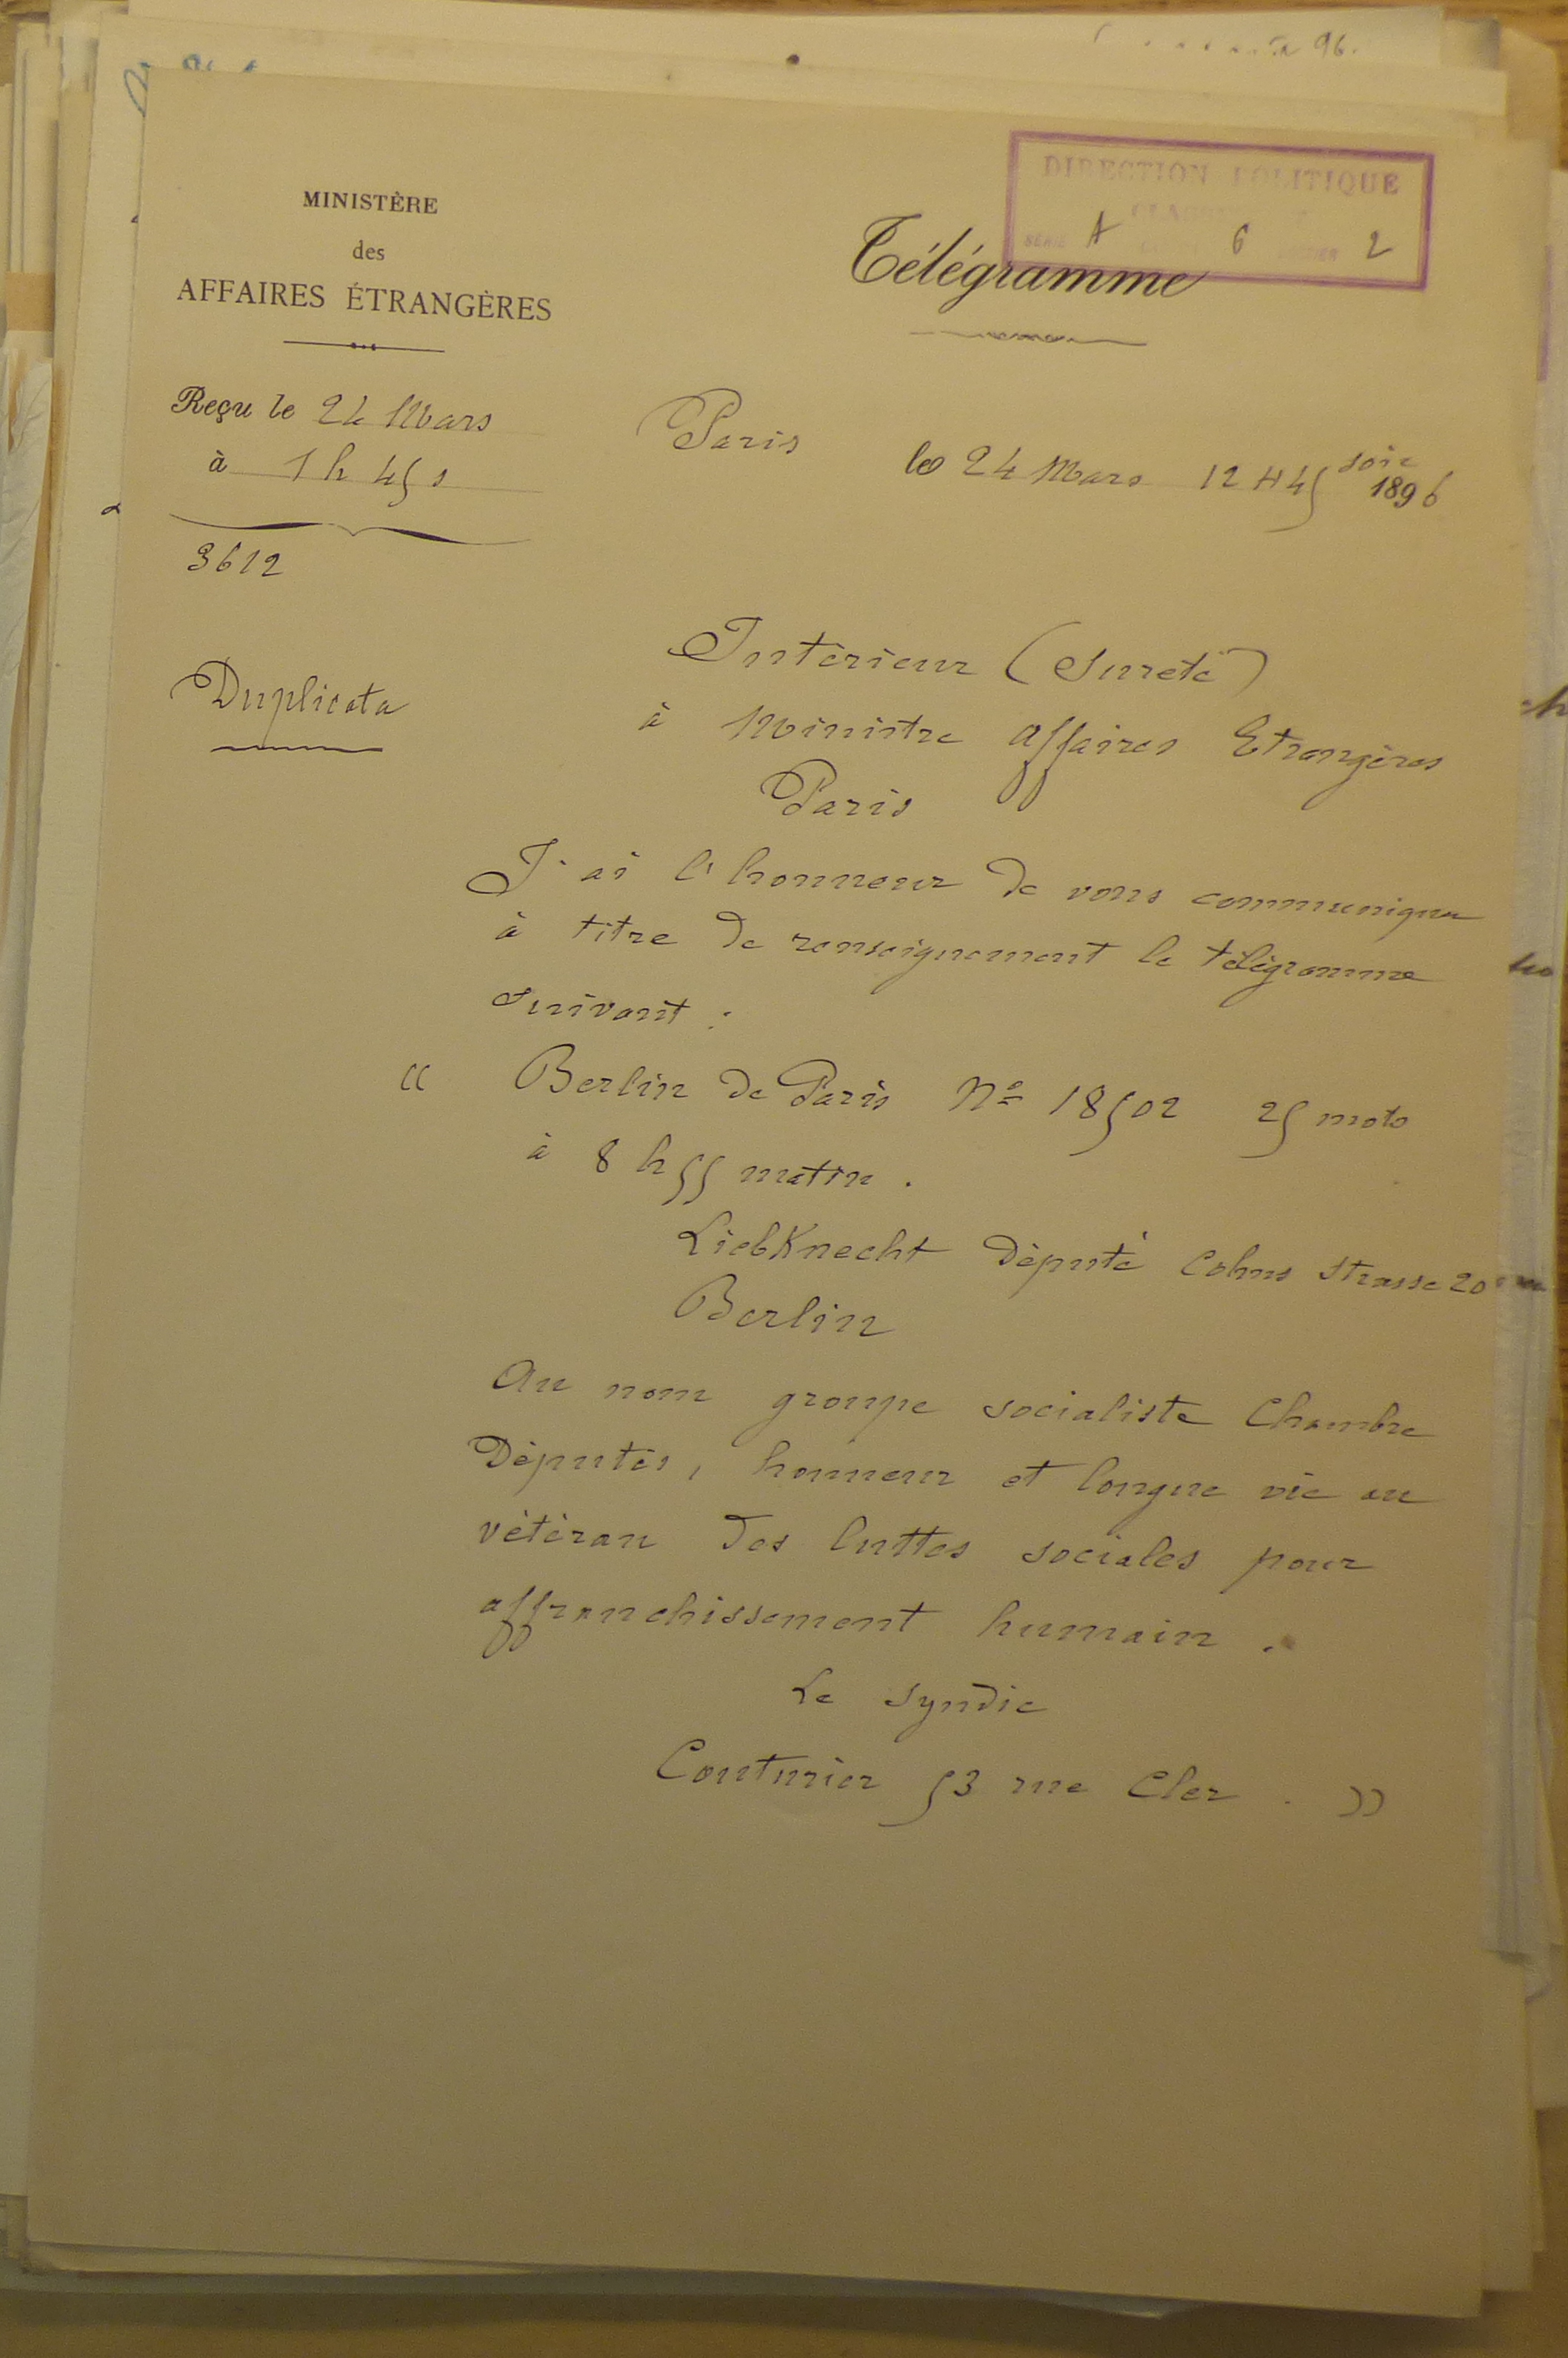 DIRECTION POLITIQUE
SÉRIE A 6 DOSSIER 2
MINISTÈRE
des
AFFAIRES ÉTRANGÈRES
Télégramme
Reçu le 24 Mars
à 1 h 45 s
3612
Paris le 24 Mars 12 H 45 soir 1896
Duplicata
Intérieur (Sureté)
à Ministre Affaires Etrangères
Paris
J'ai l'honneur de vous communiquer
à titre de renseignement le télégramme
suivant :
« Berlin de Paris No 18502 25 mots
à 8 h 55 matin .
Liebknecht Député Cohns strasse 20
Berlin
Au nom groupe socialiste Chambre
Députés, honneur et longue vie au
vétéran des luttes sociales pour
affranchissement humain .
Le Syndic
Couturier 53 rue Cler . »